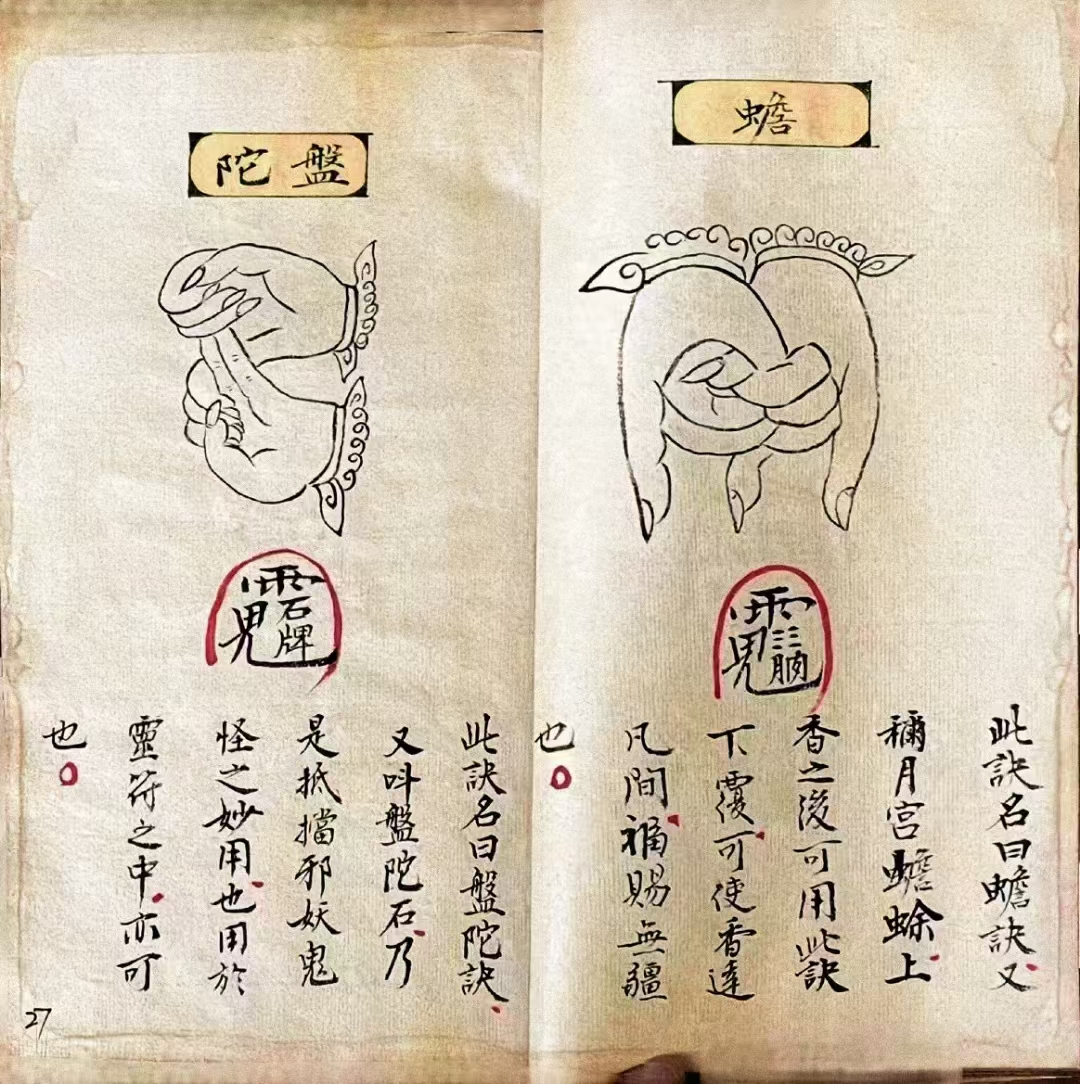 蟾
此訣名曰蟾訣、又
穪月宮蟾蜍、上
香之後可用此訣
下覆、可使香達
凡間、福賜無疆
也。
盤陀
此訣名曰盤陀訣、
又叫盤陀石、乃
是抵擋邪妖鬼
怪之妙用、也用於
靈符之中、亦可
也。
27